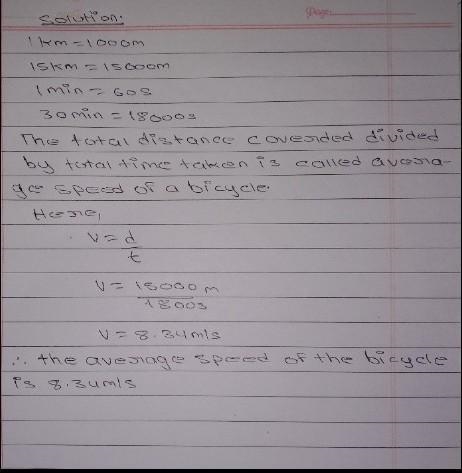 Page:
Solution:
1km = 1000m
15km = 15000m
1min = 60s
30min = 1800s
The total distance coverded divided
by total time taken is called avera-
ge speed of a bicycle.
Here,
V = d
t
V = 15000m
1800s
V = 8.34m/s
∴ the average speed of the bicycle
is 8.34m/s